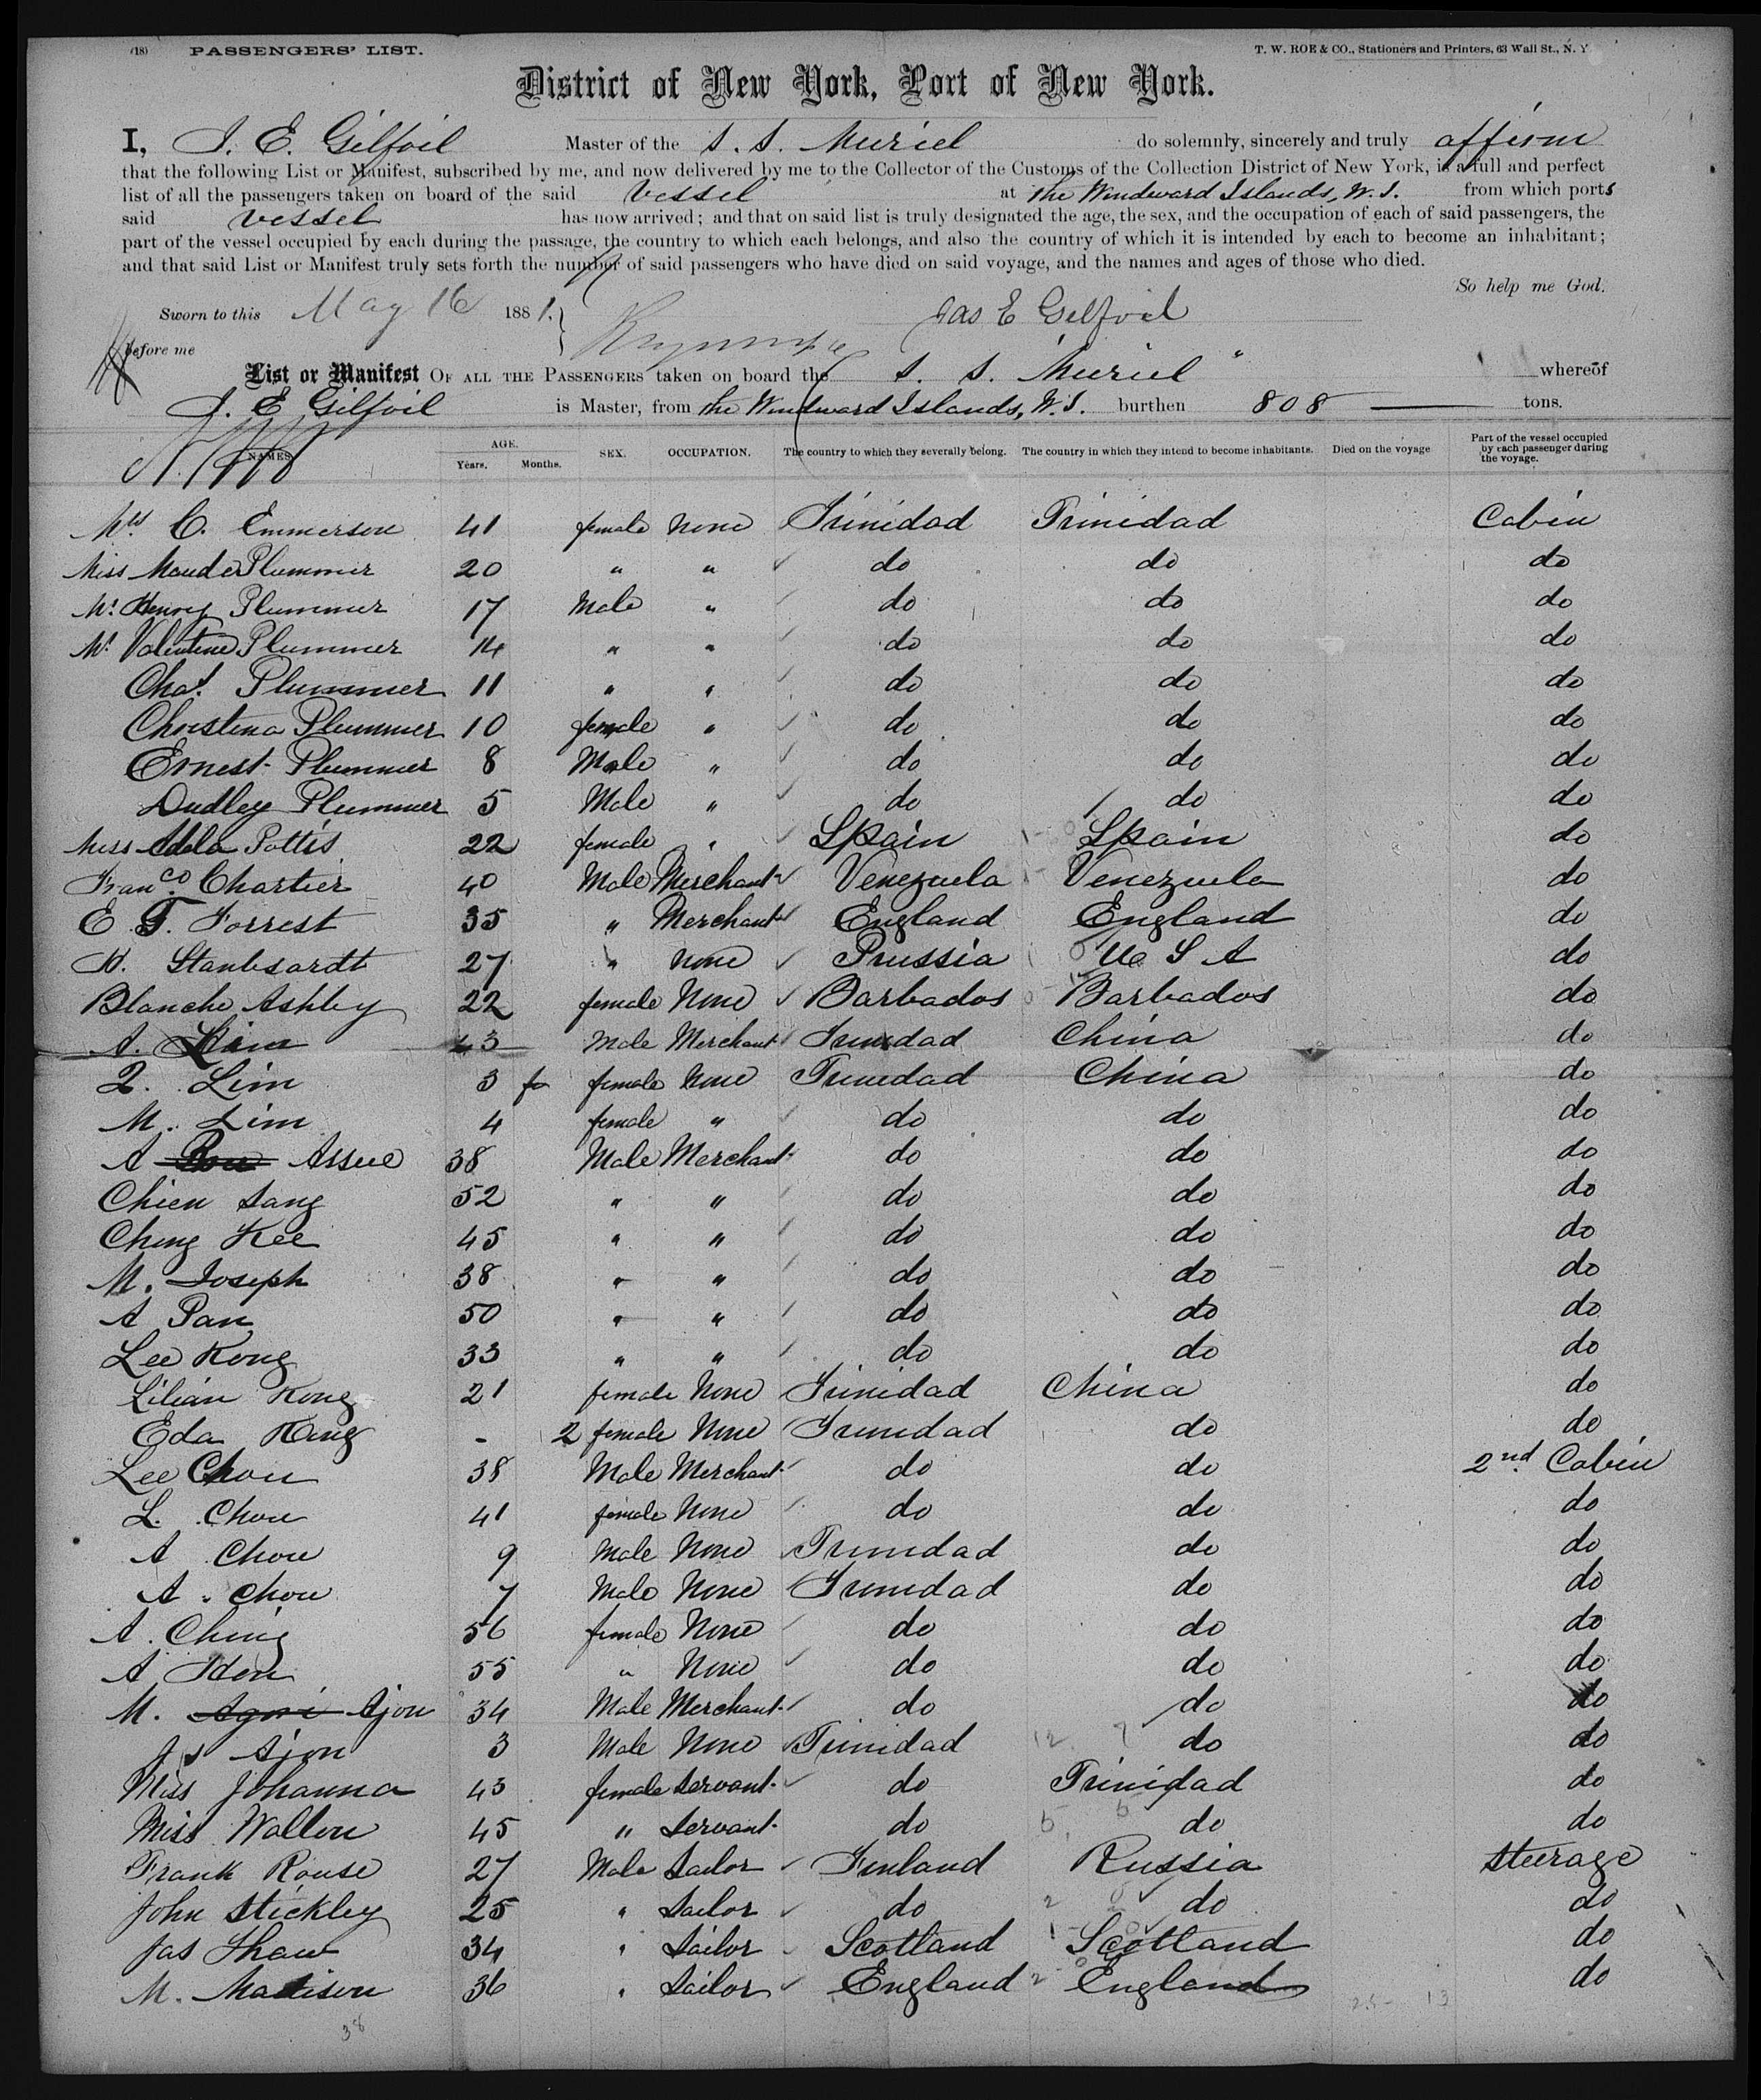 (18) PASSENGERS' LIST. T. W. ROE & CO., Stationers and Printers, 63 Wall St., N. Y
District of New York, Port of New York.
I, J. E. Gilfoil Master of the S. S. Muriel do solemnly, sincerely and truly affirm
that the following List or Manifest, subscribed by me, and now delivered by me to the Collector of the Customs of the Collection District of New York, is a full and perfect
list of all the passengers taken on board of the said vessel at the Windward Islands, W. I. from which ports
said vessel has now arrived; and that on said list is truly designated the age, the sex, and the occupation of each of said passengers, the
part of the vessel occupied by each during the passage, the country to which each belongs, and also the country of which it is intended by each to become an inhabitant;
and that said List or Manifest truly sets forth the number of said passengers who have died on said voyage, and the names and ages of those who died.
So help me God.
Sworn to this May 16 1881. Jas E Gilfoil
before me
List or Manifest OF ALL THE PASSENGERS taken on board the S. S. Muriel " whereof
J. E Gilfoil is Master, from the Windward Islands, W. I. burthen 808 tons.
NAMES AGE. Years. Months. SEX. OCCUPATION. The country to which they severally belong. The country in which they intend to become inhabitants. Died on the voyage Part of the vessel occupied by each passenger during the voyage.
Mrs C. Emmerson 41 female none Trinidad Trinidad Cabin
Miss Maude Plummer 20 " " do do do
Mr Henry Plummer 17 Male " do do do
Mr Valentine Plummer 14 " " do do do
Chas. Plummer 11 " " do do do
Christina Plummer 10 female " do do do
Ernest Plummer 8 Male " do do do
Dudley Plummer 5 Male " do do do
Miss Adela Pottis 22 female " Spain Spain do
Franco. Chartier 40 Male Merchant Venezuela Venezuela do
E. T. Forrest 35 " Merchant England England do
27 " none Prussia U S A do
Blanche Ashley 22 female None Barbados Barbados do
A. Lim 43 Male Merchant Trinidad China do
Q. Lim 3 female None Trinidad China do
M. Lim 4 female " do do do
A Assue 38 Male Merchant do do do
Chien Sang 52 " " do do do
Ching Kee 45 " " do do do
M. Joseph 38 " " do do do
A Pan 50 " " do do do
Lee Kong 33 " " do do do
Lilian Kong 21 female None Trinidad China do
Eda Kong - 2 female None Trinidad do do
Lee Chou 38 Male Merchant do do 2nd Cabin
L. Chou 41 female None do do do
A Chou 9 Male None Trinidad do do
A. Chou 7 Male None Trinidad do do
A. Ching 56 female None do do do
A 55 " None do do do
M. Ajon 34 Male Merchant do do do
Js Ajon 3 Male None Trinidad do do
Miss Johanna 43 female Servant do Trinidad do
Miss Wallou 45 " Servant do do do
Frank Rouse 27 Male Sailor Finland Russia Steerage
John Stickley 25 " Sailor do do do
Jas Shaw 34 " Sailor Scotland Scotland do
M. Madison 36 " Sailor England England do
38